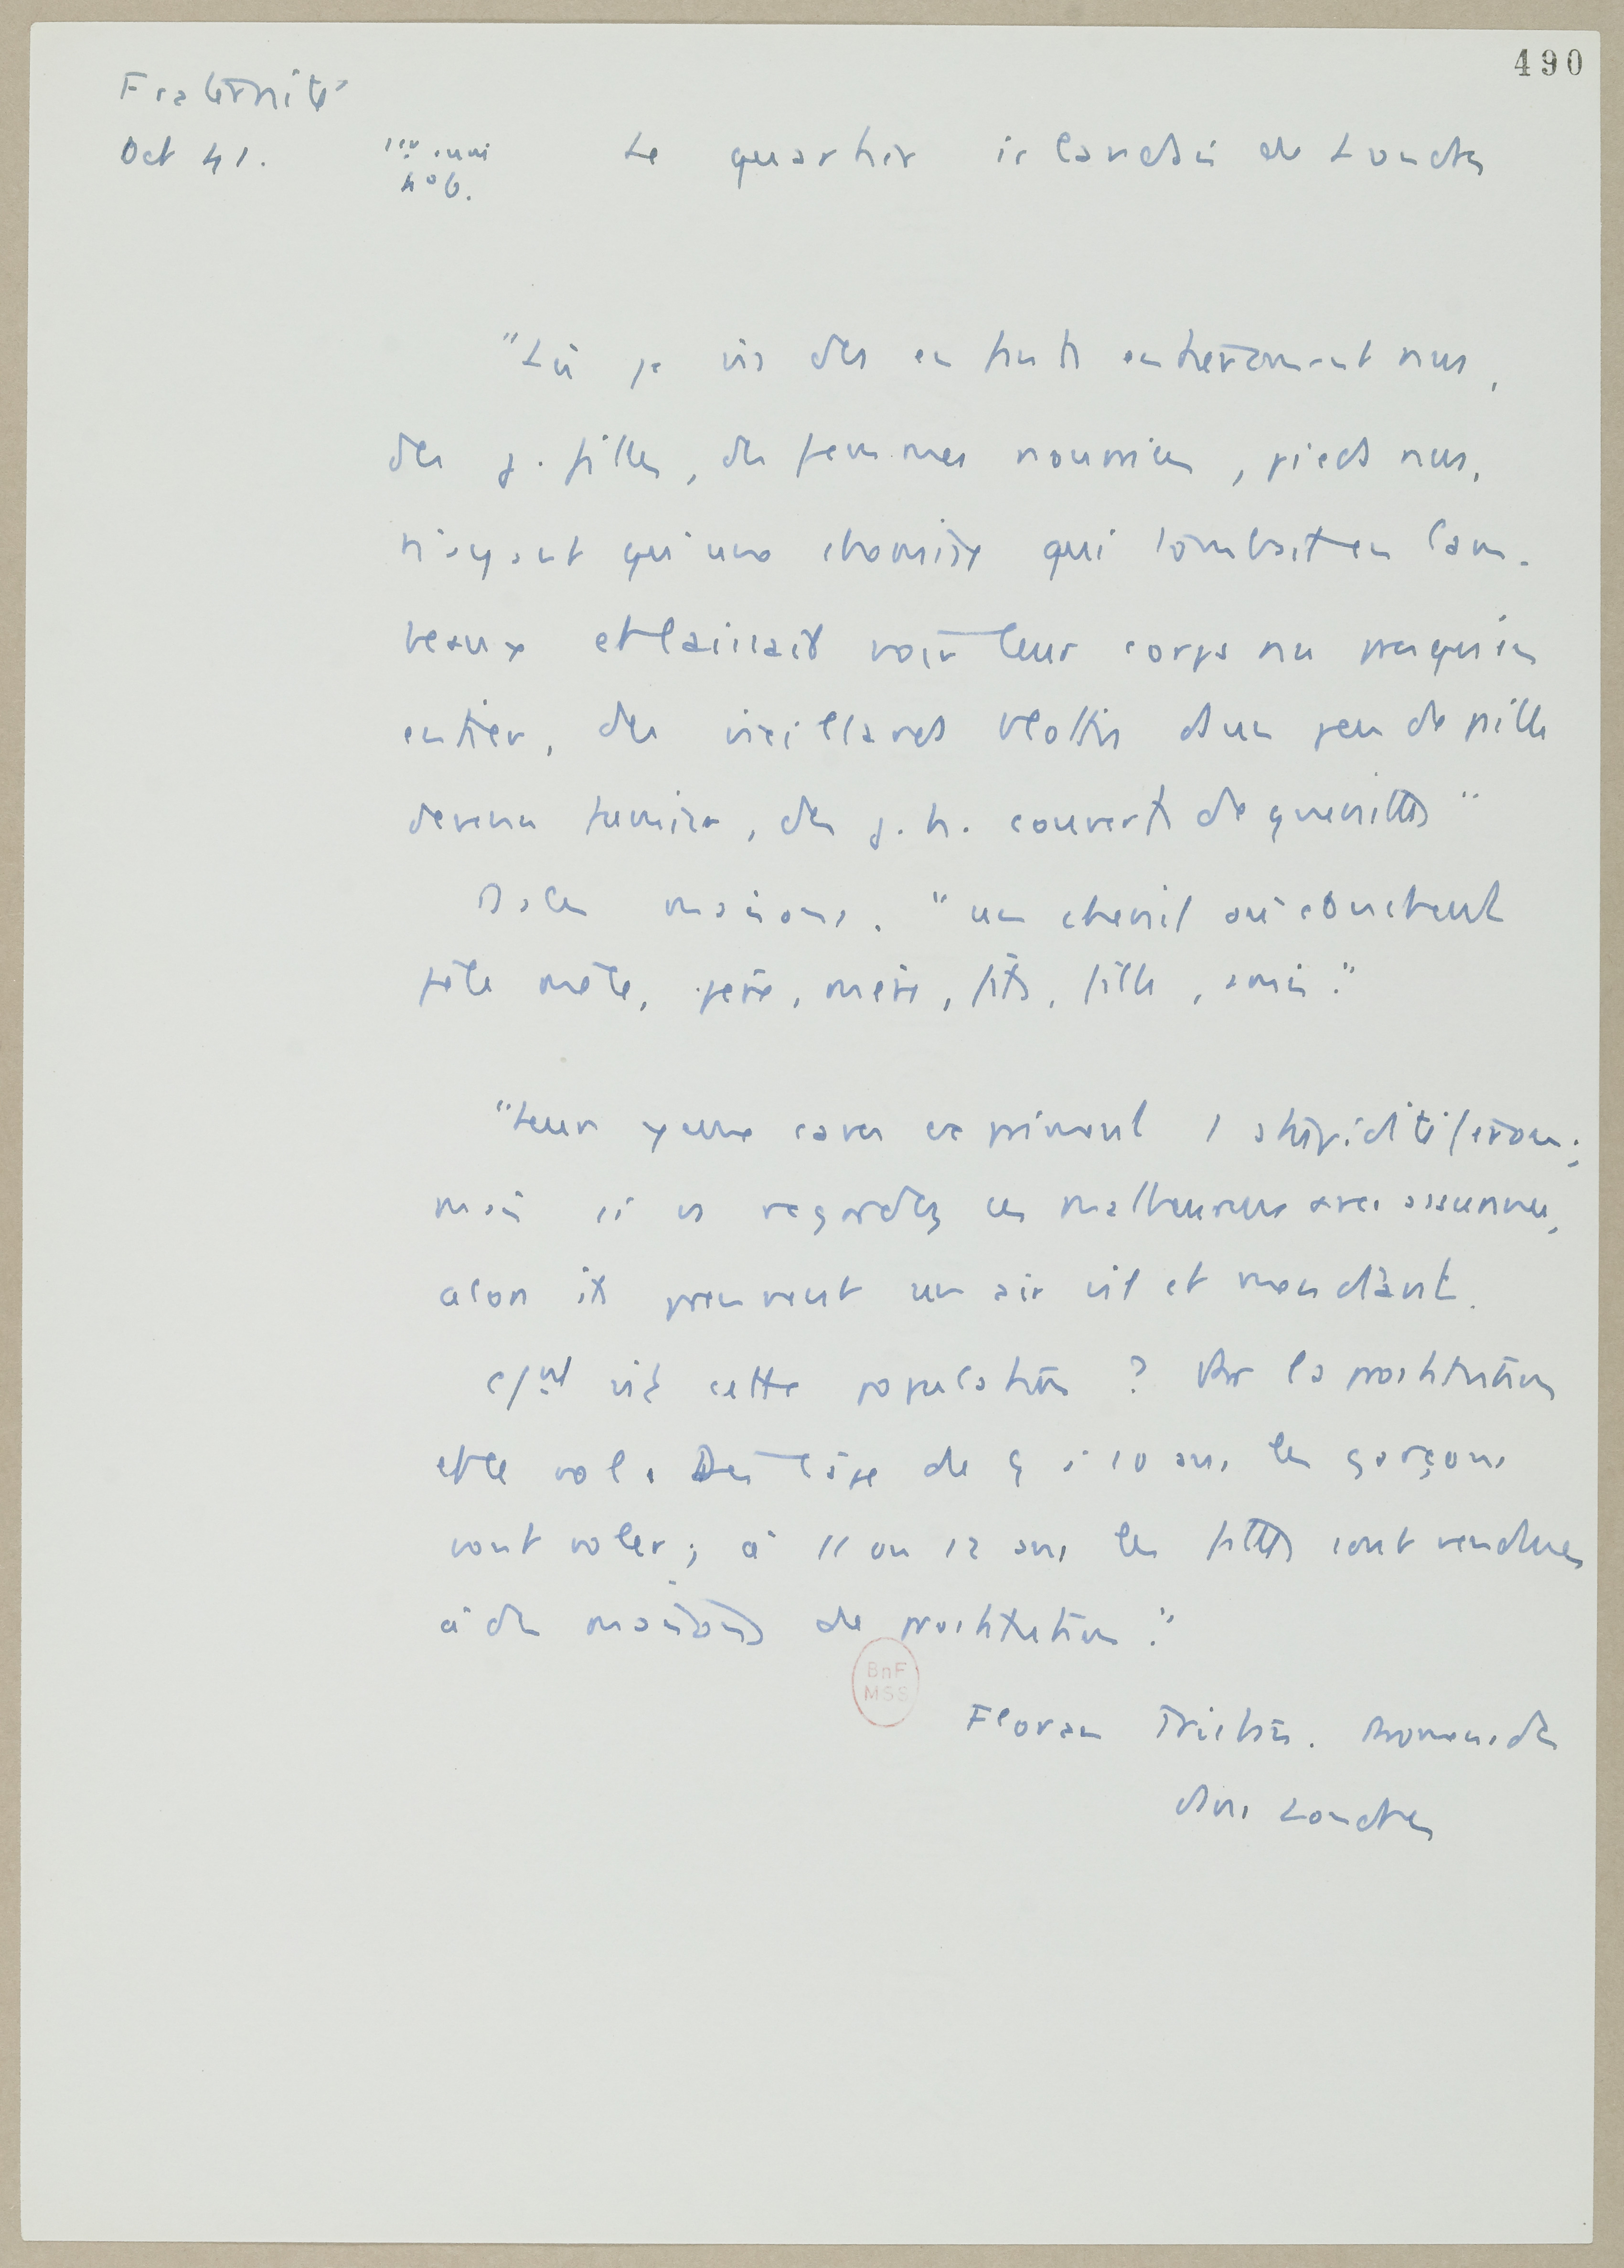 490
Fraternité
Oct 41.
n° 6.
Le quartier irlandais de Londres
"Là je vis des enfants entièrement nus,
des j. filles, des femmes nourrices, pieds nus,
n'ayant qu'une chemise qui tombait en lam-
beaux et laissait voir leur corps nu presqu'en
entier, des vieillards blottis dans un peu de paille
devenu fumier, des j. h. couverts de guenilles"
Ds les maisons. "un chenil où couchent
pêle mêle, père, mère, fils, fille, amis."
"Leurs yeux caves expriment stupidité féroce;
mais si vs regardez ces malheureux avec assurance,
alors ils prennent un air vil et mendiant.
vit cette population ? Par la prostitution
et le vol. Dès l'âge de 9 à 10 ans, les garçons
vont voler; à 11 ou 12 ans les filles sont vendues
à des maisons de prostitution."
BnF
MSS
Flora Tristan. Promenades
dans Londres